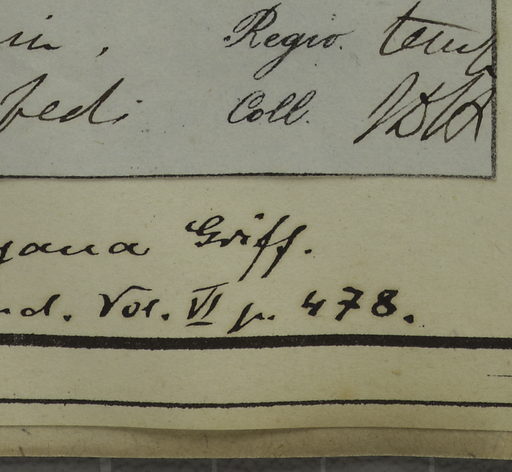 in, Regio. temp
ped: Coll. JDH
yana Griff.
nd. Vol. VI p. 478.